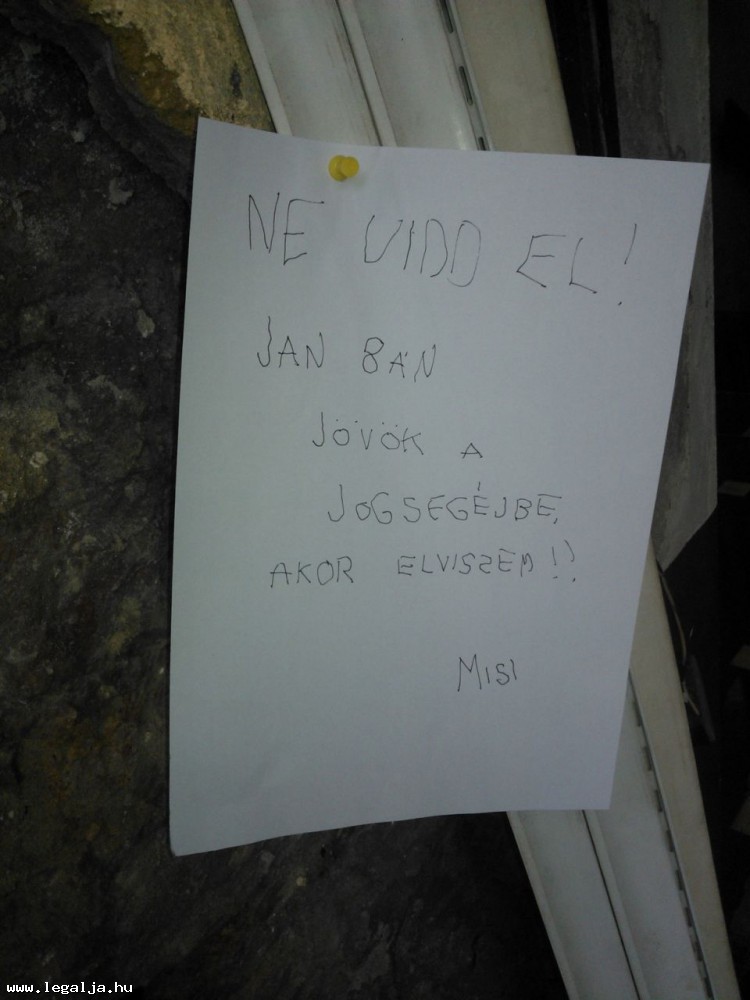 NE VIDD EL!
JAN 8ÁN
JÖVÖK A
JOGSEGÉJBE,
AKOR ELVISZEM!!
MISI
www.legalja.hu